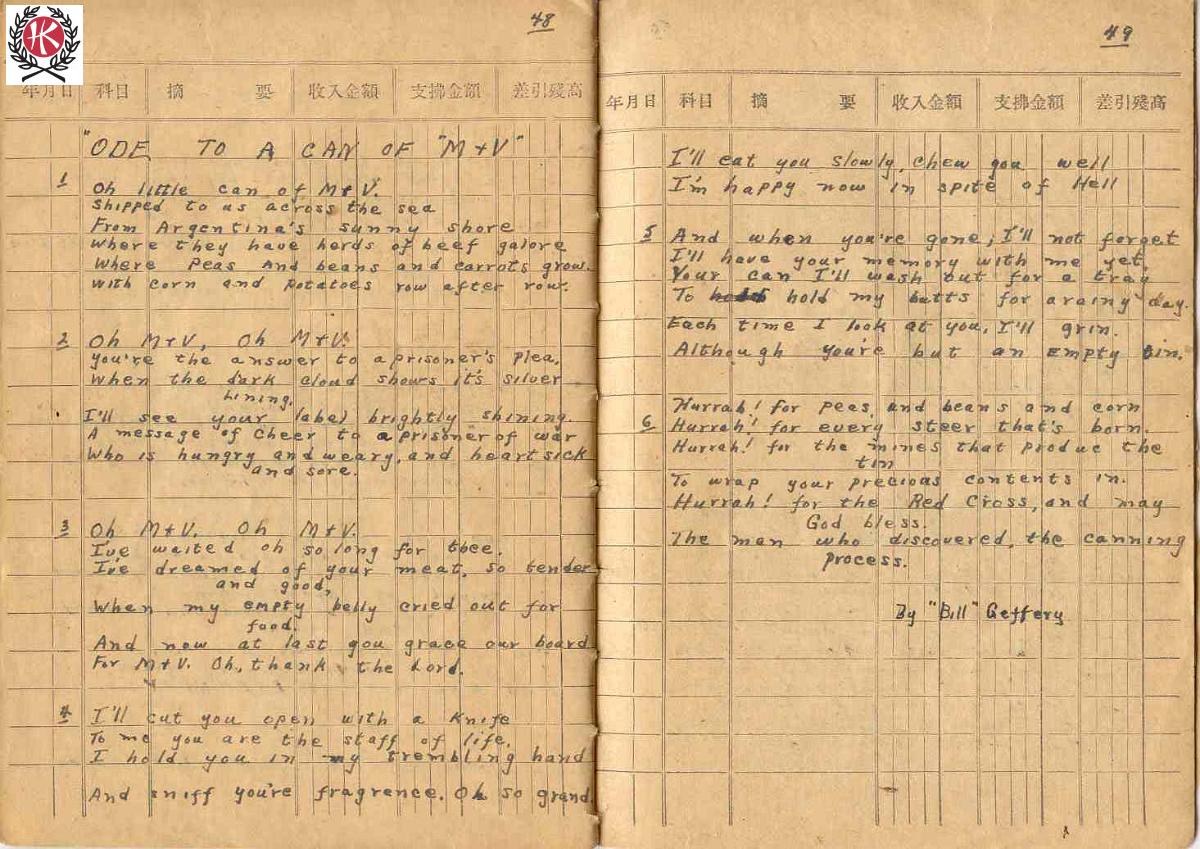 HK
48
年月日 科目 摘 要 收入金額 支拂金額 差引殘高
"ODE TO A CAN OF "M+V"
1 Oh little can of M+V.
Shipped to us across the sea
From Argentina's sunny shore
Where they have herds of beef galore
Where Peas And beans and carrots grow.
With corn and potatoes row after row.
2 Oh M+V, Oh M+V.
You're the answer to a prisoner's plea.
When the dark cloud shows it's silver
Lining.
I'll see your label brightly shining.
A message of cheer to a prisoner of war
Who is hungry and weary, and heart sick
and sore.
3 Oh M+V. Oh M+V.
I've waited oh so long for thee.
I've dreamed of your meat, so tender
and good,
When my empty belly cried out for
food.
And now at last you grace our board
For M+V. Oh, thank the Lord.
4 I'll cut you open with a Knife
To me you are the staff of life.
I hold you in my trembling hand
And sniff you're fragrence. Oh so grand.
49
年月日 科目 摘 要 收入金額 支拂金額 差引殘高
I'll eat you slowly, chew you well
I'm happy now in spite of Hell
5 And when you're gone, I'll not forget
I'll have your memory with me yet.
Your can I'll wash but for a tray
To hold my butts for a rainy day.
Each time I look at you, I'll grin.
Although you're but an empty tin.
Hurrah! for peas, and beans and corn
6 Hurrah! for every steer that's born.
Hurrah! for the mines that produce the
tin
To wrap your precious contents in.
Hurrah! for the Red Cross, and may
God bless.
The man who discovered, the canning
process.
By "Bill" Geffery